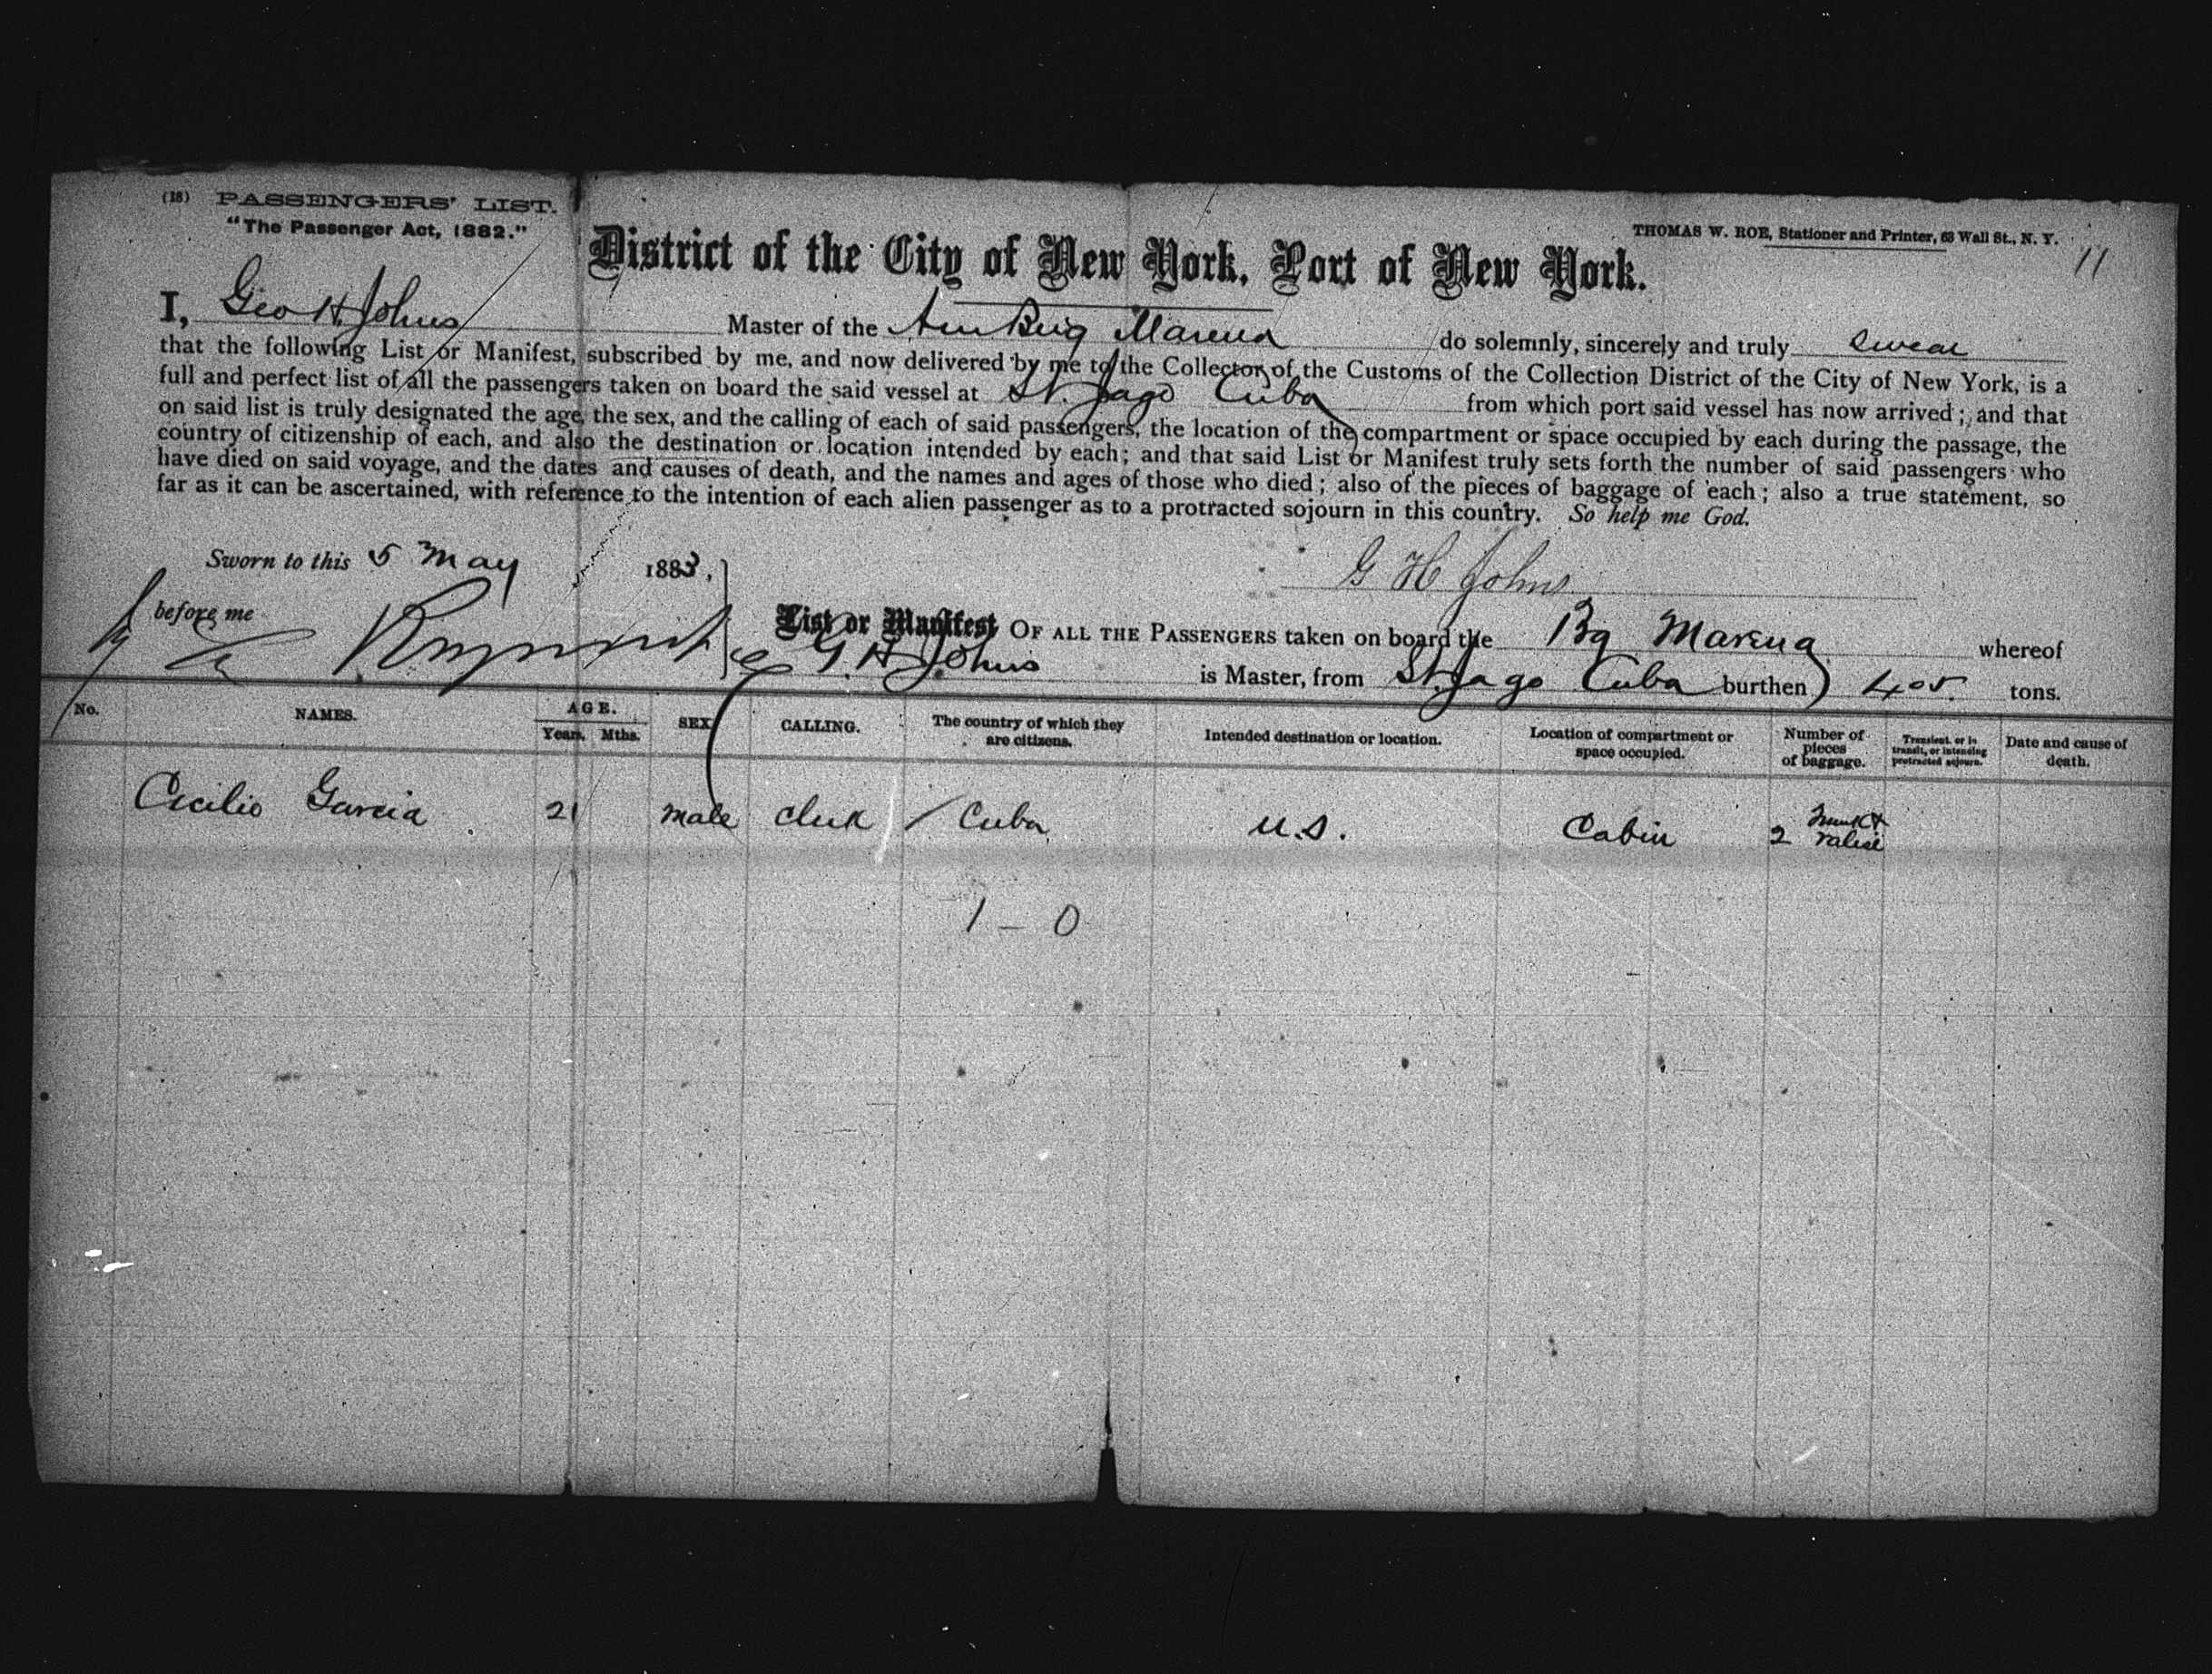 (18) PASSENGERS' LIST.
"The Passenger Act, 1882."
THOMAS W. ROE, Stationer and Printer, 63 Wall St., N. Y.
11
District of the City of New York, Port of New York.
I, Geo H. Johns Master of the Am Brig Marena do solemnly, sincerely and truly swear
that the following List or Manifest, subscribed by me, and now delivered by me to the Collector of the Customs of the Collection District of the City of New York, is a
full and perfect list of all the passengers taken on board the said vessel at St. Jago Cuba from which port said vessel has now arrived; and that
on said list is truly designated the age, the sex, and the calling of each of said passengers, the location of the compartment or space occupied by each during the passage, the
country of citizenship of each, and also the destination or location intended by each; and that said List or Manifest truly sets forth the number of said passengers who
have died on said voyage, and the dates and causes of death, and the names and ages of those who died; also of the pieces of baggage of each; also a true statement, so
far as it can be ascertained, with reference to the intention of each alien passenger as to a protracted sojourn in this country. So help me God.
Sworn to this 5 May 1883,
G H Johns
before me
List or Manifest OF ALL THE PASSENGERS taken on board the Bg Marena whereof
G. H Johns is Master, from St. Jago Cuba burthen 405 tons.
No. NAMES. AGE. Years. Mths. SEX CALLING. The country of which they are citizens. Intended destination or location. Location of compartment or space occupied. Number of pieces of baggage. Transient, or in transit, or intending protracted sojourn. Date and cause of death.
Cecilio Garcia 21 male clerk / Cuba U.S. Cabin 2 Trunk & valise
1 - 0